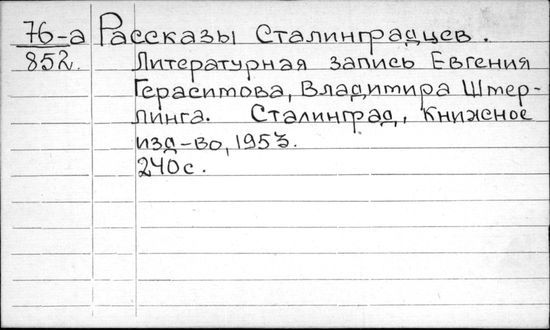 76-а Рассказы Сталинградцев.
852. Литературная запись Евгения
Герасимова, Владимира Штер-
линга. Сталинград, Книжное
изд-во, 1953.
240 с.